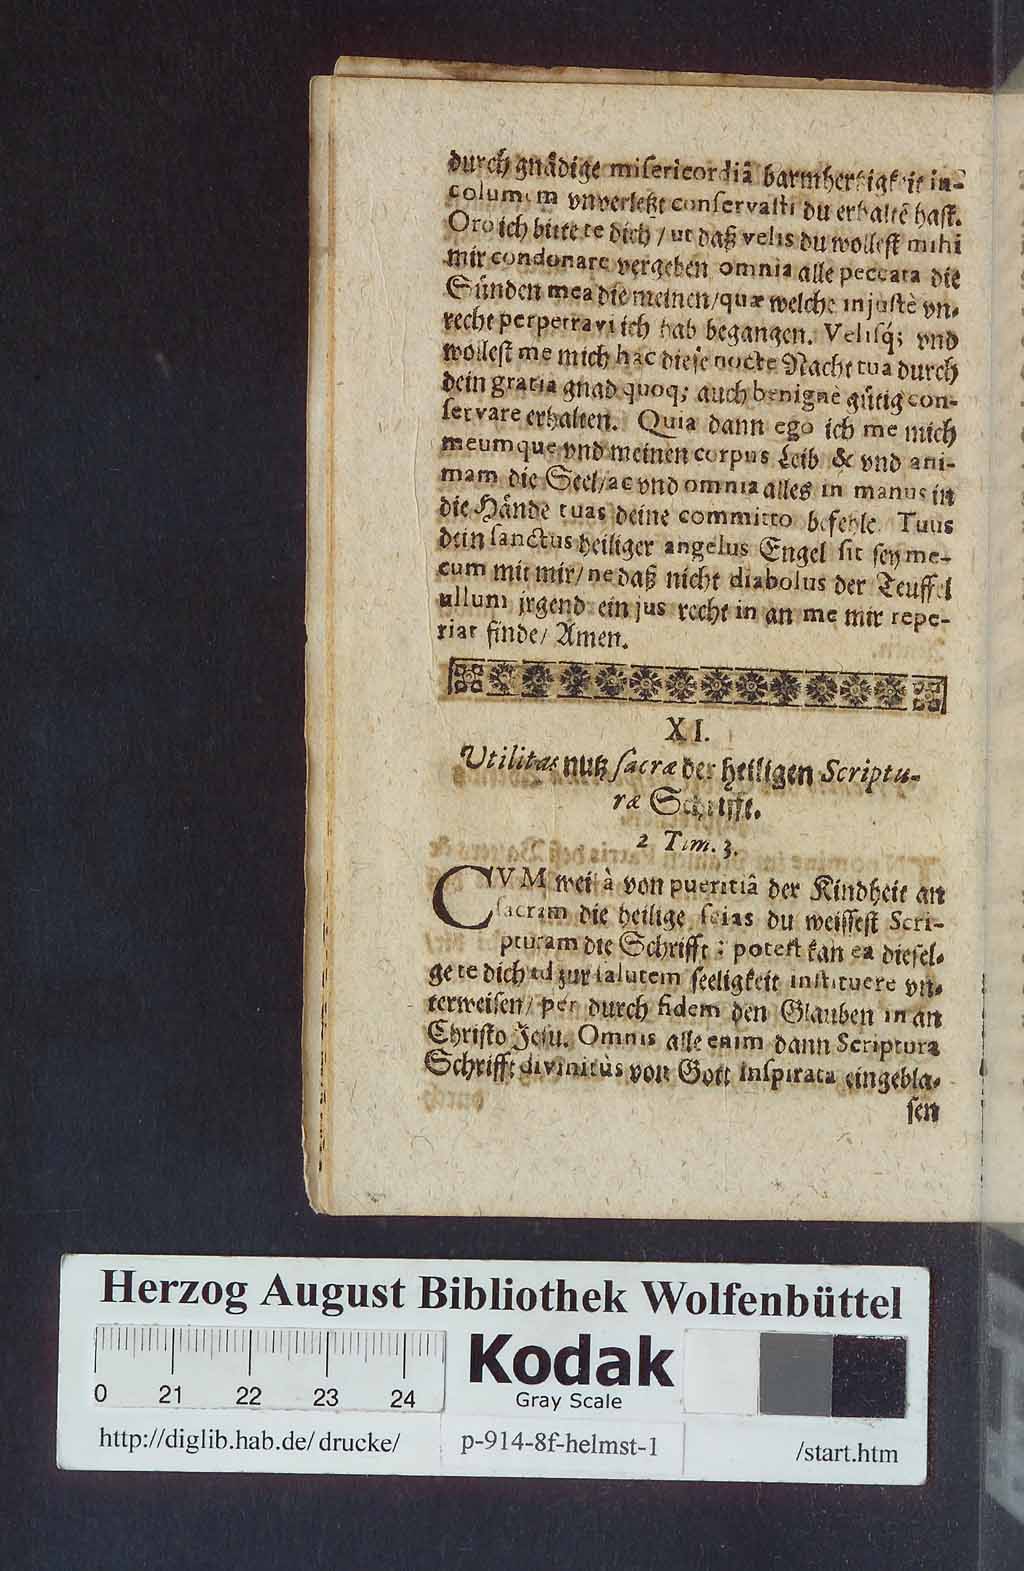 durch gnådige misericordiâ barmhertzigkeit in-
columem vnverletzt conservasti du erhaltē hast.
Oro ich bitte te dich / ut daß velis du wollest mihi
mir condonare vergeben omnia alle peccata die
Sünden mea die meinen / quæ welche injustè vn-
recht perpetravi ich hab begangen. Velisq́; vnd
wollest me mich hac diese nocte Nacht tua durch
dein gratia gnad quoq; auch benignè gütig con-
servare erhalten. Quia dann ego ich me mich
meumque vnd meinen corpus Leib & vnd ani-
mam die Seel / ac vnd omnia alles in manus in
die Hände tuas deine committo befehle. Tuus
dein sanctus heiliger angelus Engel sit sey me-
cum mit mir / ne daß nicht diabolus der Teuffel
ullum jrgend ein jus recht in an me mir repe-
riat finde / Amen.
XI.
Utilitas nutz sacræ der heiligen Scriptu-
ræ Schrifft.
2 Tim. 3.
CVM weil à von pueritiâ der Kindheit an
sacram die heilige scias du weissest Scri-
pturam die Schrifft: potest kan ea diesel-
ge te dich ad zur salutem seeligkeit instituere vn-
terweisen / per durch fidem den Glauben in an
Christo Jesu. Omnis alle enim dann Scriptura
Schrifft divinitùs von Gott inspirata eingebla-
sen
Herzog August Bibliothek Wolfenbüttel
0 21 22 23 24
Kodak
Gray Scale
http://diglib.hab.de/ drucke/ p-914-8f-helmst-1 /start.htm